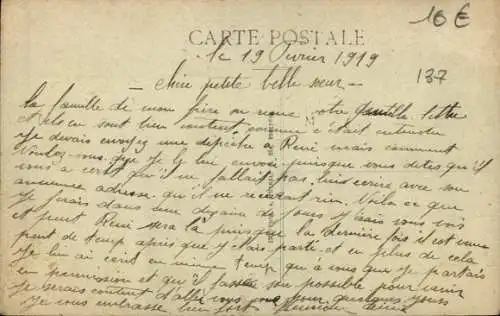 16 €
CARTE POSTALE
137
le 19 Fevrier 1919
chère petite belle sœur
la famille de mon frère on reçu votre gentille lettre
et ils en sont bien content comme c'était entendu
Je devais envoyez une depeche a René mais comment
Voulez-vous que Je la lui envoie puisque vous dites qu'il
vous a ecrit qu'il ne fallait pas lui ecrire avec son
ancienne adresse qu'il ne recevrait rien. Voila ce que
Je ferais dans une dizaine de Jours J irais vous voir
et peut René sera la puisque la dernière fois il est venu
peut de temp apres que J'etais parti et en plus de cela
Je lui ai ecrit en même temp qu'a vous que Je partais
en permission et qu'il fasse son possible pour venir
Je serais content d'aller vous voir pour quelques Jours
Je vous embrasse bien fort